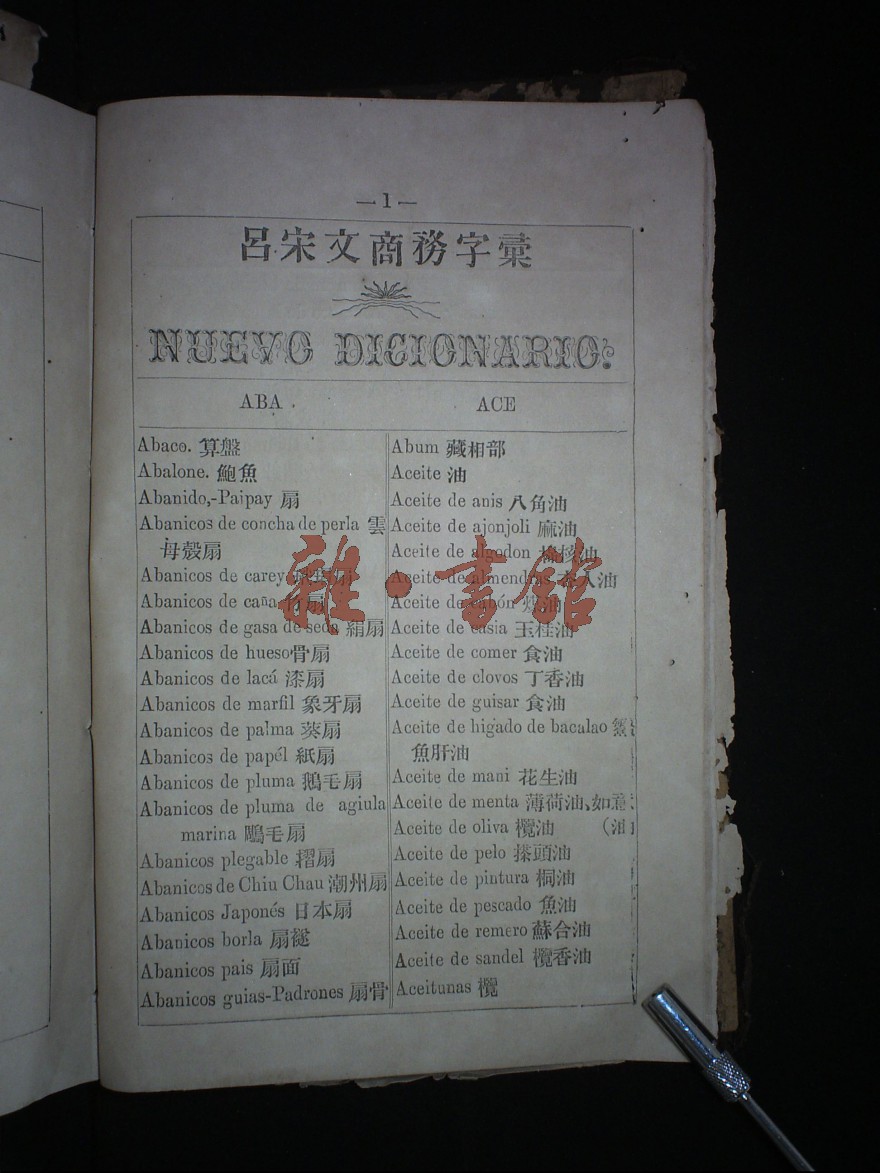 —1—
呂宋文商務字彙
NUEVO DICIONARIO.
ABA
Abaco. 算盤
Abalone. 鮑魚
Abanido,-Paipay 扇
Abanicos de concha de perla 雲
母殼扇
Abanicos de carey
Abanicos de caña 竹扇
Abanicos de gasa de seda 絹扇
Abanicos de hueso骨扇
Abanicos de lacá 漆扇
Abanicos de marfil 象牙扇
Abanicos de palma 葵扇
Abanicos de papél 紙扇
Abanicos de pluma 鵝毛扇
Abanicos de pluma de agiula
marina 鵰毛扇
Abanicos plegable 摺扇
Abanicos de Chiu Chau 潮州扇
Abanicos Japonés 日本扇
Abanicos borla 扇
Abanicos pais 扇面
Abanicos guias-Padrones 扇骨
ACE
Abum 藏相部
Aceite 油
Aceite de anis 八角油
Aceite de ajonjoli 麻油
Aceite de algodon 油
Aceite de almendras 油
Aceite de 油
Aceite de casia 玉桂油
Aceite de comer 食油
Aceite de clovos 丁香油
Aceite de guisar 食油
Aceite de higado de bacalao
魚肝油
Aceite de mani 花生油
Aceite de menta 薄荷油、如意
Aceite de oliva 欖油 (油
Aceite de pelo 搽頭油
Aceite de pintura 桐油
Aceite de pescado 魚油
Aceite de remero 蘇合油
Aceite de sandel 欖香油
Aceitunas 欖
雜·書館